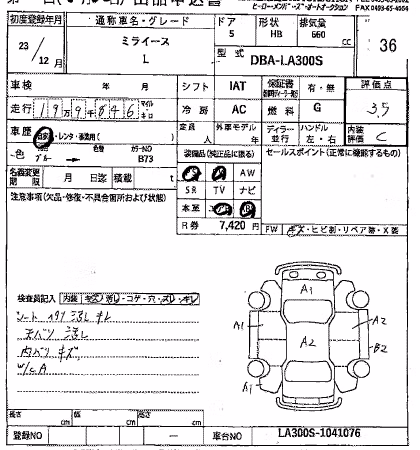 初度登録年月 通称車名・グレード ドア 形状 排気量
23 / 12 年 月 ミライース L 5 HB 660 cc 36
型式 DBA-LA300S
車検 年 月 シフト IAT 保証書 有・無 評価点
走行 19万9846 マイル キロ 冷房 AC 燃料 G 3.5
車歴 自家・レンタ・事業用( ) 定員 人 外車モデル 年 ディラー 並行 ハンドル 左・右 内装評価 C
色 ブルー 色替 カラーNO B73 装備品(純正品に限る) セールスポイント(正常に機能するもの)
名義変更期限 月 日迄 積載 t AW
SR TV ナビ
注意事項(欠品・修復・不具合箇所および状態)
R券 7,420円
FW キズ・ヒビ割・リペア跡・X装
検査員記入 内装 キズ・汚レ・コゲ・穴・スレ・キレ
シート 汚レ キレ
天バリ 汚レ
内バリ キズ
W/C A
A1
A1 A2 A2
B2
A1
長さ cm 幅 cm 高さ cm
登録NO — 車台NO LA300S-1041076